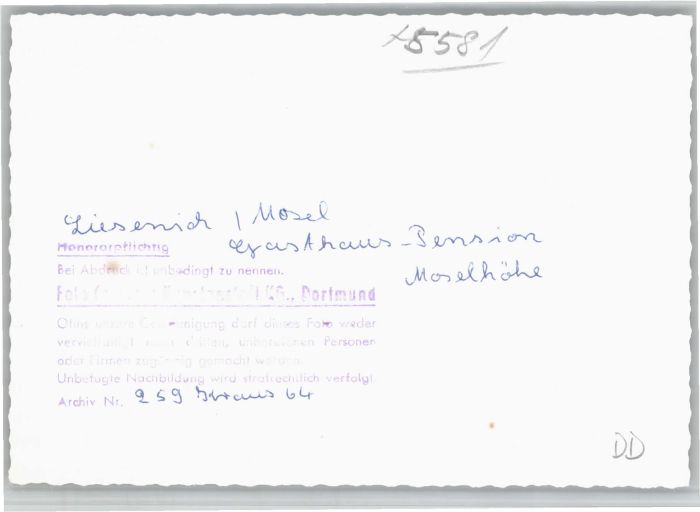 x5581
Liesenich / Mosel
Gasthaus-Pension
Moselhöhe
Honorarpflichtig
Bei Abdruck ist unbedingt zu nennen.
Foto KG., Dortmund
Ohne unsere Genehmigung darf dieses Foto weder
vervielfältigt noch dritten, unberufenen Personen
oder Firmen zugängig gemacht werden.
Unbefugte Nachbildung wird strafrechtlich verfolgt.
Archiv Nr. 259 Kraus 64
DD